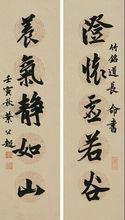 竹銘道長命書
澄懷虛若谷
養氣靜如山
壬寅秋葉公超